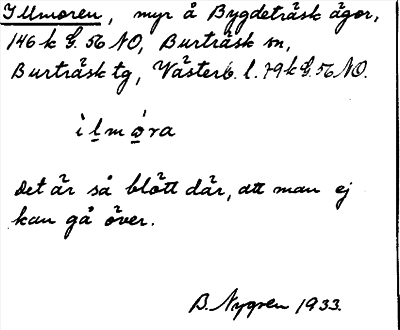 Illmoren, myr å Bygdeträsk ägor,
146 k G. 56 NO, Burträsk sn,
Burträsk tg, Västerb. l. 79 k G. 56 NO.
ìl̠mo̠ra
Det är så blött där, att man ej
kan gå över.
B. Nygren 1933.